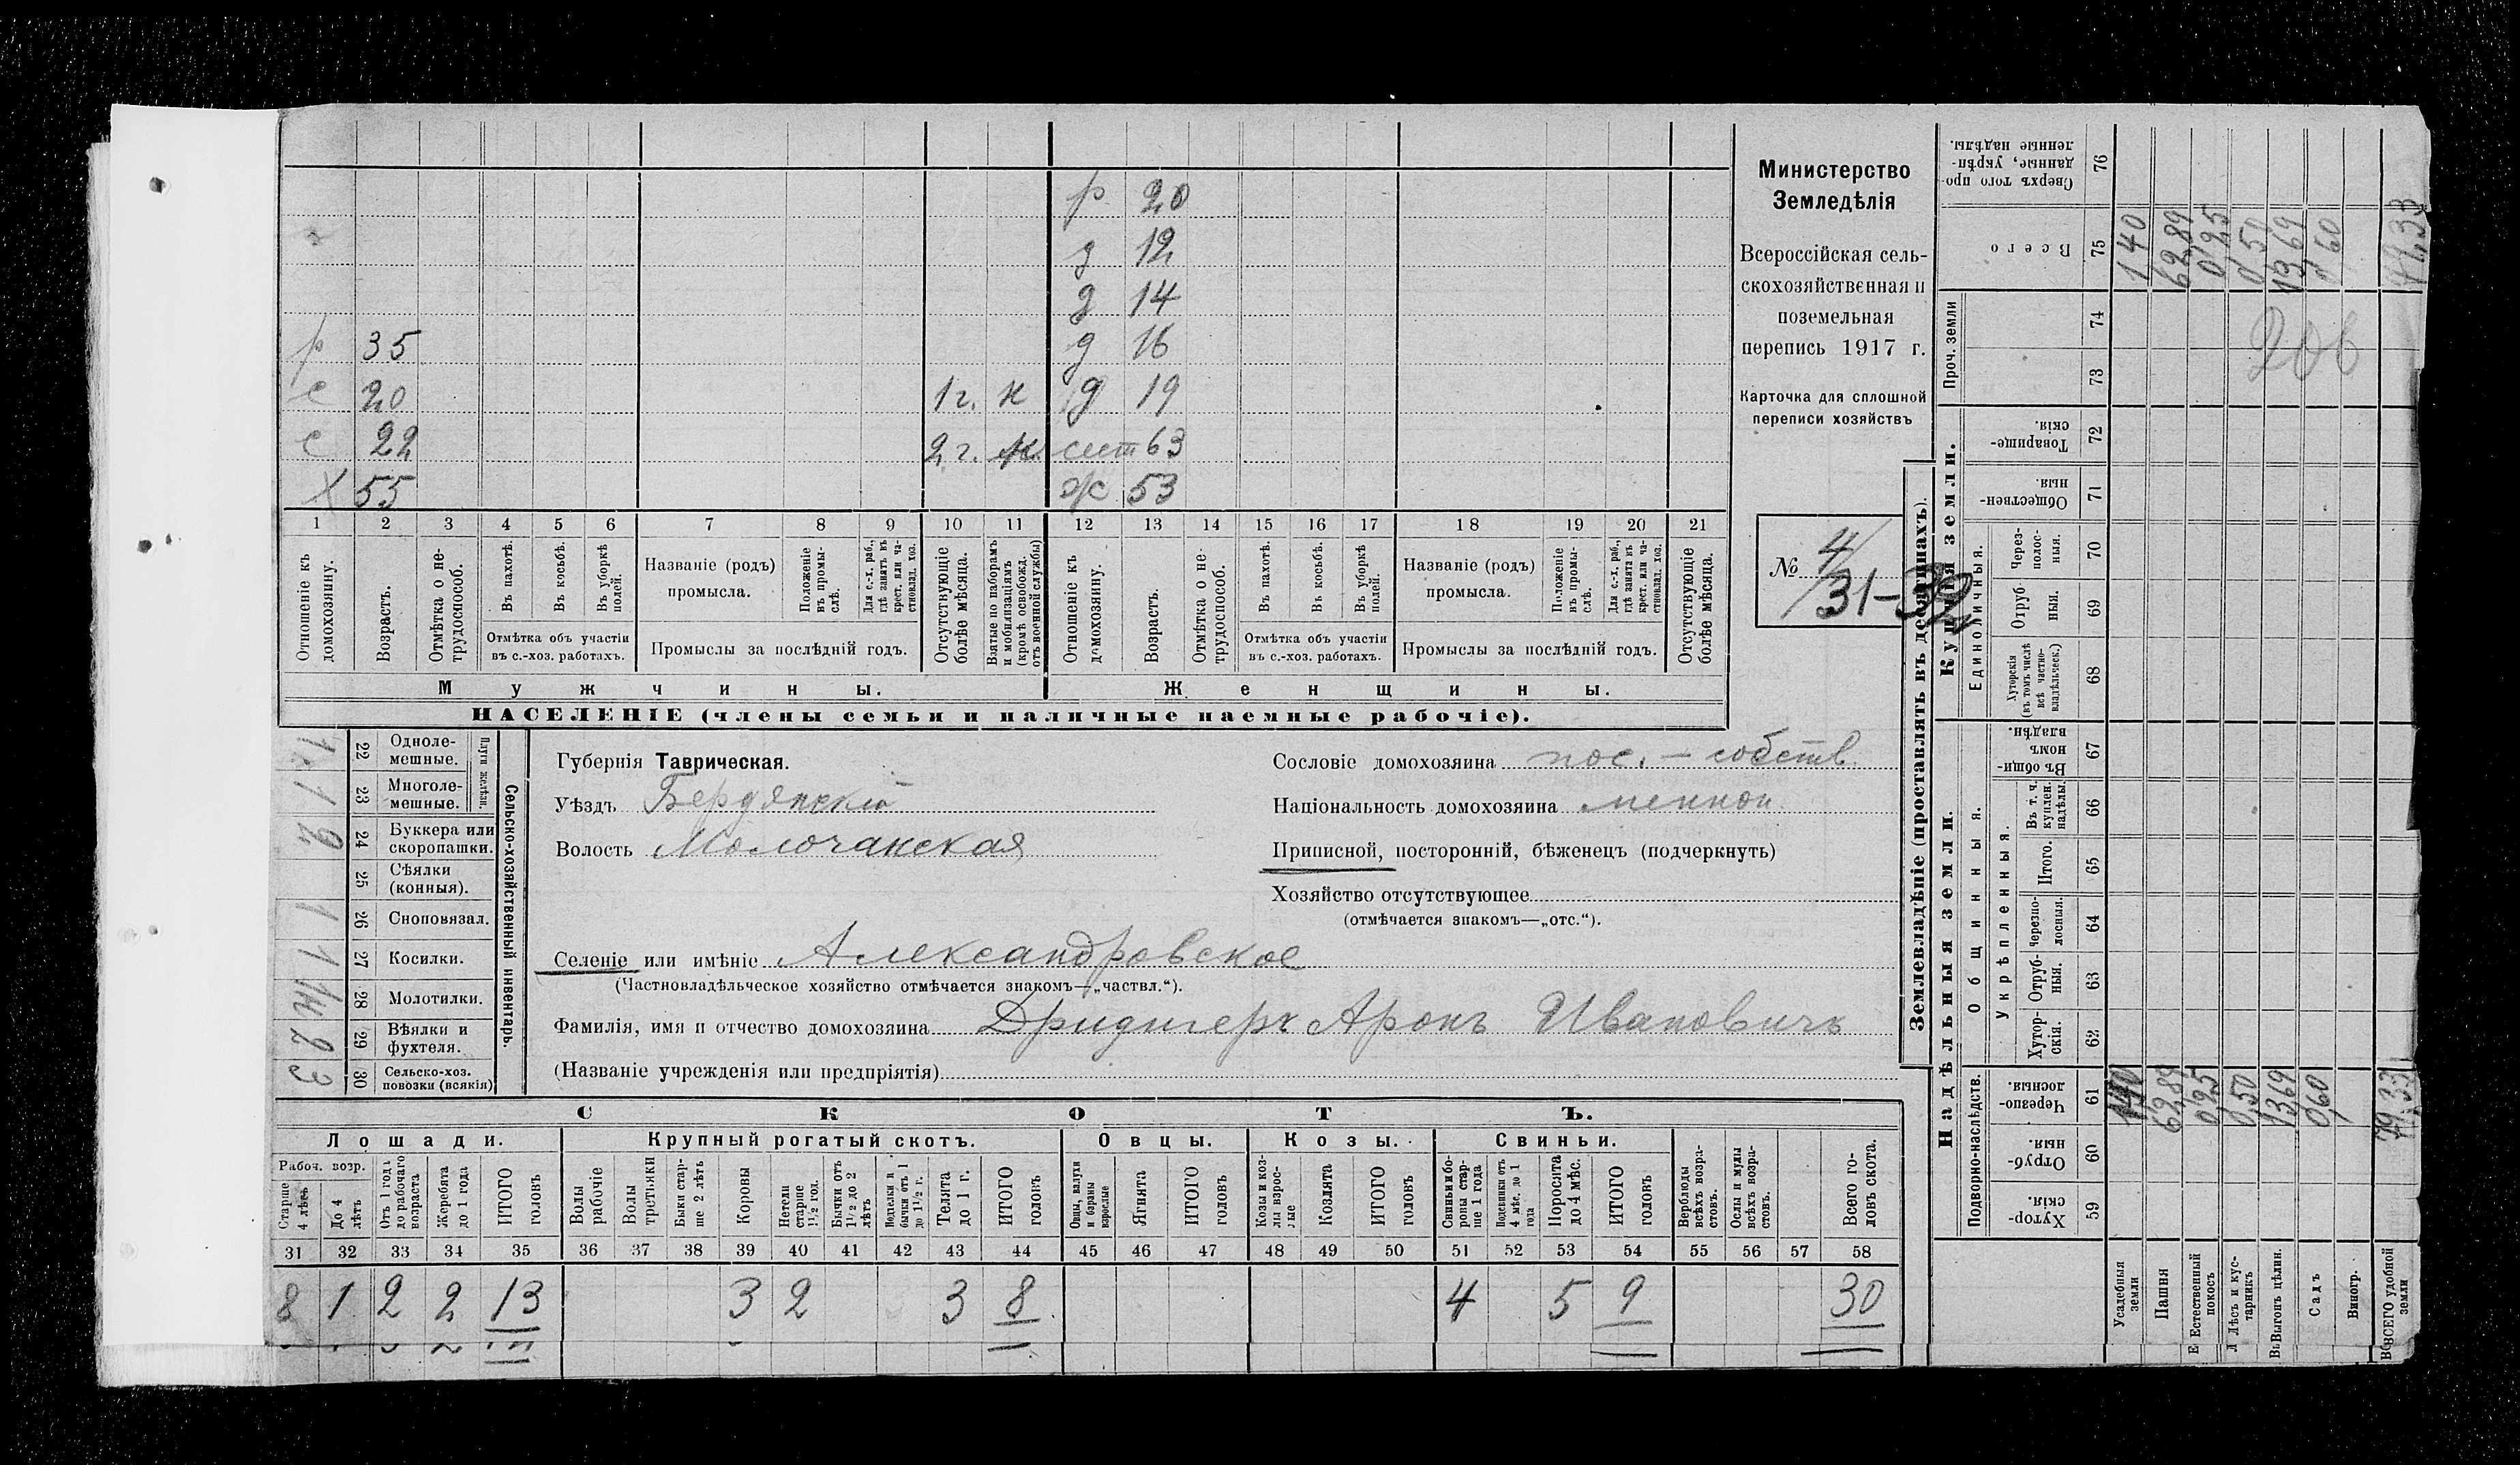 р 20
д 12
д 14
р 35 д 16
с 20 1 г. н д 19
с 22 2 г. сест 63
Х 55 ж 53
1 2 3 4 5 6 7 8 9 10 11 12 13 14 15 16 17 18 19 20 21
Отношеніе къ домохозяину.
Возрастъ.
Отмѣтка о не-трудоспособ.
Въ пахотѣ.
Въ косьбѣ.
Въ уборкѣ полей.
Отмѣтка объ участіи
въ с.-хоз. работахъ.
Названіе (родъ)
промысла.
Положеніе въ промы-слѣ.
Для с.-х. раб., гдѣ занятъ въ крест. или ча-стновлад. хоз.
Промыслы за послѣдній годъ.
Отсутствующіе болѣе мѣсяца.
Взятые по наборамъ и мобилизаціямъ (кромѣ освобожд. отъ военной службы)
Отношеніе къ домохозяину.
Возрастъ.
Отмѣтка о не-трудоспособ.
Въ пахотѣ.
Въ косьбѣ.
Въ уборкѣ полей.
Отмѣтка объ участіи
въ с.-хоз. работахъ.
Названіе (родъ)
промысла.
Положеніе въ промы-слѣ.
Для с.-х. раб., гдѣ занята въ крест. или ча-стновлад. хоз.
Промыслы за послѣдній годъ.
Отсутствующіе болѣе мѣсяца.
Мужчины. Женщины.
НАСЕЛЕНІЕ (члены семьи и наличные наемные рабочіе).
Министерство
Земледѣлія
Всероссійская сель-
скохозяйственная и
поземельная
перепись 1917 г.
Карточка для сплошной
переписи хозяйствъ
№ 4/
31-32
22 Одноле-
мешные.
23 Многоле-
мешные.
Плуги желѣзн.
24 Буккера или
скоропашки.
25 Сѣялки
(конныя).
26 Сноповязал.
27 Косилки.
28 Молотилки.
29 Вѣялки и
фухтеля.
30 Сельско-хоз.
повозки (всякія)
Сельско-хозяйственный инвентарь.
Губернія Таврическая.
Уѣздъ Бердянскій
Волость Молочанская
Сословіе домохозяина пос. - собств.
Національность домохозяина меннон.
Приписной, посторонній, бѣженецъ (подчеркнуть)
Хозяйство отсутствующее
(отмѣчается знакомъ—„отс.“).
Селеніе или имѣніе Александровское
(Частновладѣльческое хозяйство отмѣчается знакомъ—„частвл.“).
Фамилія, имя и отчество домохозяина Дридигеръ Аронъ Ивановичъ
(Названіе учрежденія или предпріятія)
СКОТЪ.
Лошади. Крупный рогатый скотъ. Овцы. Козы. Свиньи.
Рабоч. возр.
Старше 4 лѣтъ
До 4 лѣтъ
Отъ 1 года до рабочаго возраста
Жеребята до 1 года
ИТОГО головъ
Волы рабочіе
Волы третьяки
Быки стар-ше 2 лѣтъ
Коровы
Нетели старше 1½ год.
Бычки отъ 1½ до 2 лѣтъ
бычки отъ 1 до 1½ г.
Телята до 1 г.
ИТОГО головъ
Овцы, валухи и бараны взрослые
Ягнята
ИТОГО головъ
Козы и коз-лы взрос-лые
Козлята
ИТОГО головъ
Свиньи и бо-ровы стар-ше 1 года
Подсвинки отъ 4 мѣс. до 1 года
Поросята до 4 мѣс.
ИТОГО головъ
Верблюды всѣхъ возра-стовъ.
Ослы и мулы всѣхъ возра-стовъ.
Всего го-ловъ скота.
31 32 33 34 35 36 37 38 39 40 41 42 43 44 45 46 47 48 49 50 51 52 53 54 55 56 57 58
8 1 2 2 13 3 2 3 8 4 5 9 30
Землевладѣніе (проставлять въ десятинахъ).
Надѣльныя земли. Купчія земли. Проч. земли
Подворно-наслѣдств.
Общинныя.
Укрѣпленныя.
Единоличныя.
59 Хутор-скія.
60 Отруб-ныя.
61 Черезпо-лосныя.
62 Хутор-скія.
63 Отруб-ныя.
64 Черезпо-лосныя.
65 Итого.
66 Въ т. ч. куплен. надѣлы.
67 Въ общи-номъ владѣн.
68 Хуторскія (въ томъ числѣ всѣ частно-владѣльческ.)
69 Отруб-ныя.
70 Через-полос-ныя.
71 Обществен-ныя.
72 Товарище-скія.
73
74
75 Всего
76 Сверхъ того про-данные, укрѣп-ленные надѣлы.
Усадебныя земли 1,40 1,40
Пашня 62,89 62,89
Естественный покосъ 0,25 0,25
Лѣсъ и кус-тарникъ 0,50 0,50
Выгонъ цѣлин. 13,69 13,69
Садъ 0,60 0,60
Виногр.
ВСЕГО удобной земли 79,33
206